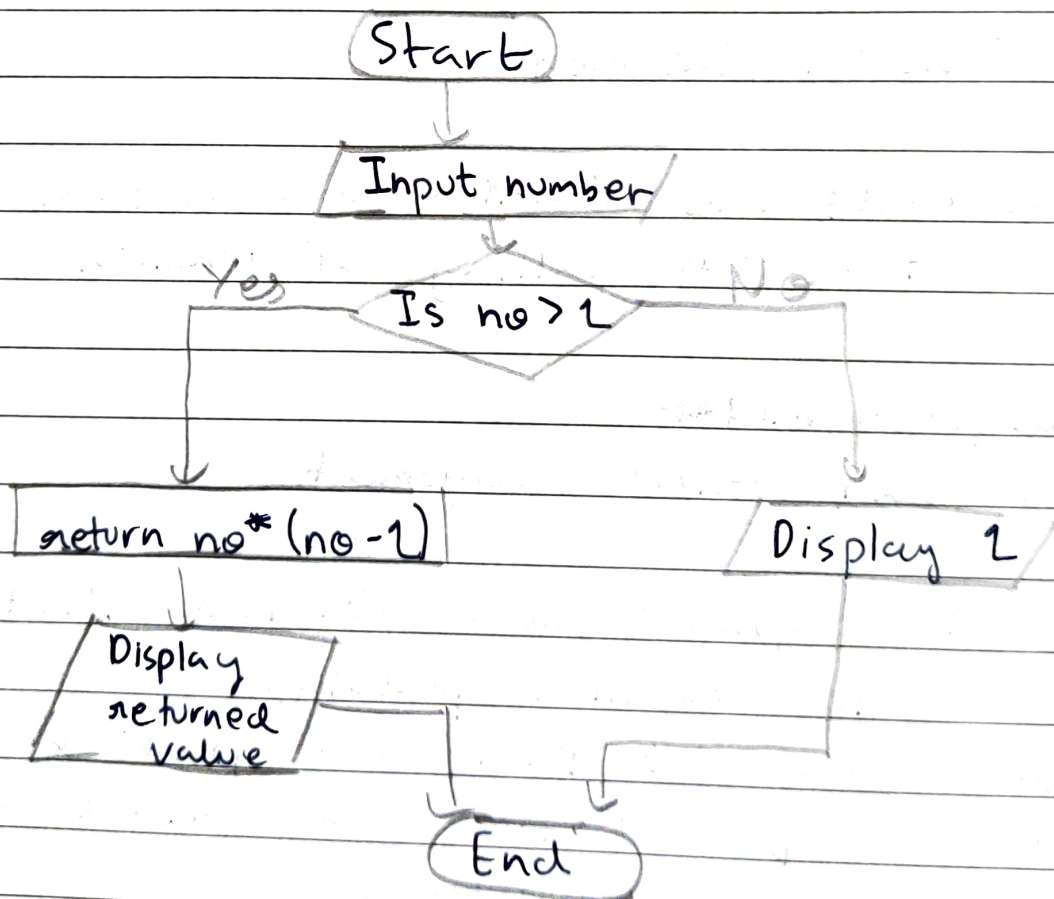 Start
Input number
Yes
Is no > 1
No
return no* (no-1)
Display 1
Display
returned
value
End